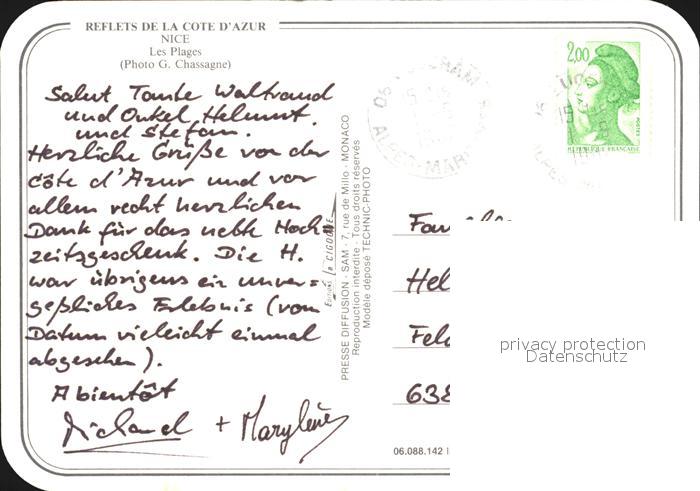 REFLETS DE LA COTE D'AZUR
NICE
Les Plages
(Photo G. Chassagne)
Salut Tante Waltraud
und Onkel Helmut,
und Stefan.
Herzliche Grüße von der
Côte d'Azur und vor
allem recht herzlichen
Dank für das nette Hoch=
zeitsgeschenk. Die H.
war übrigens ein unver=
geßliches Erlebnis (vom
Datum vielleicht einmal
abgesehen).
A bientôt
Richard + Marylène
Editions la CIGOGNE
PRESSE DIFFUSION - SAM - 7, rue de Millo - MONACO
Reproduction interdite - Tous droits réservés
Modèle déposé TECHNIC-PHOTO
2,00
POSTES
REPUBLIQUE FRANÇAISE
06
ALPES-MAR
15
Fam
Hel
Feld
638
privacy protection
Datenschutz
06.088.142